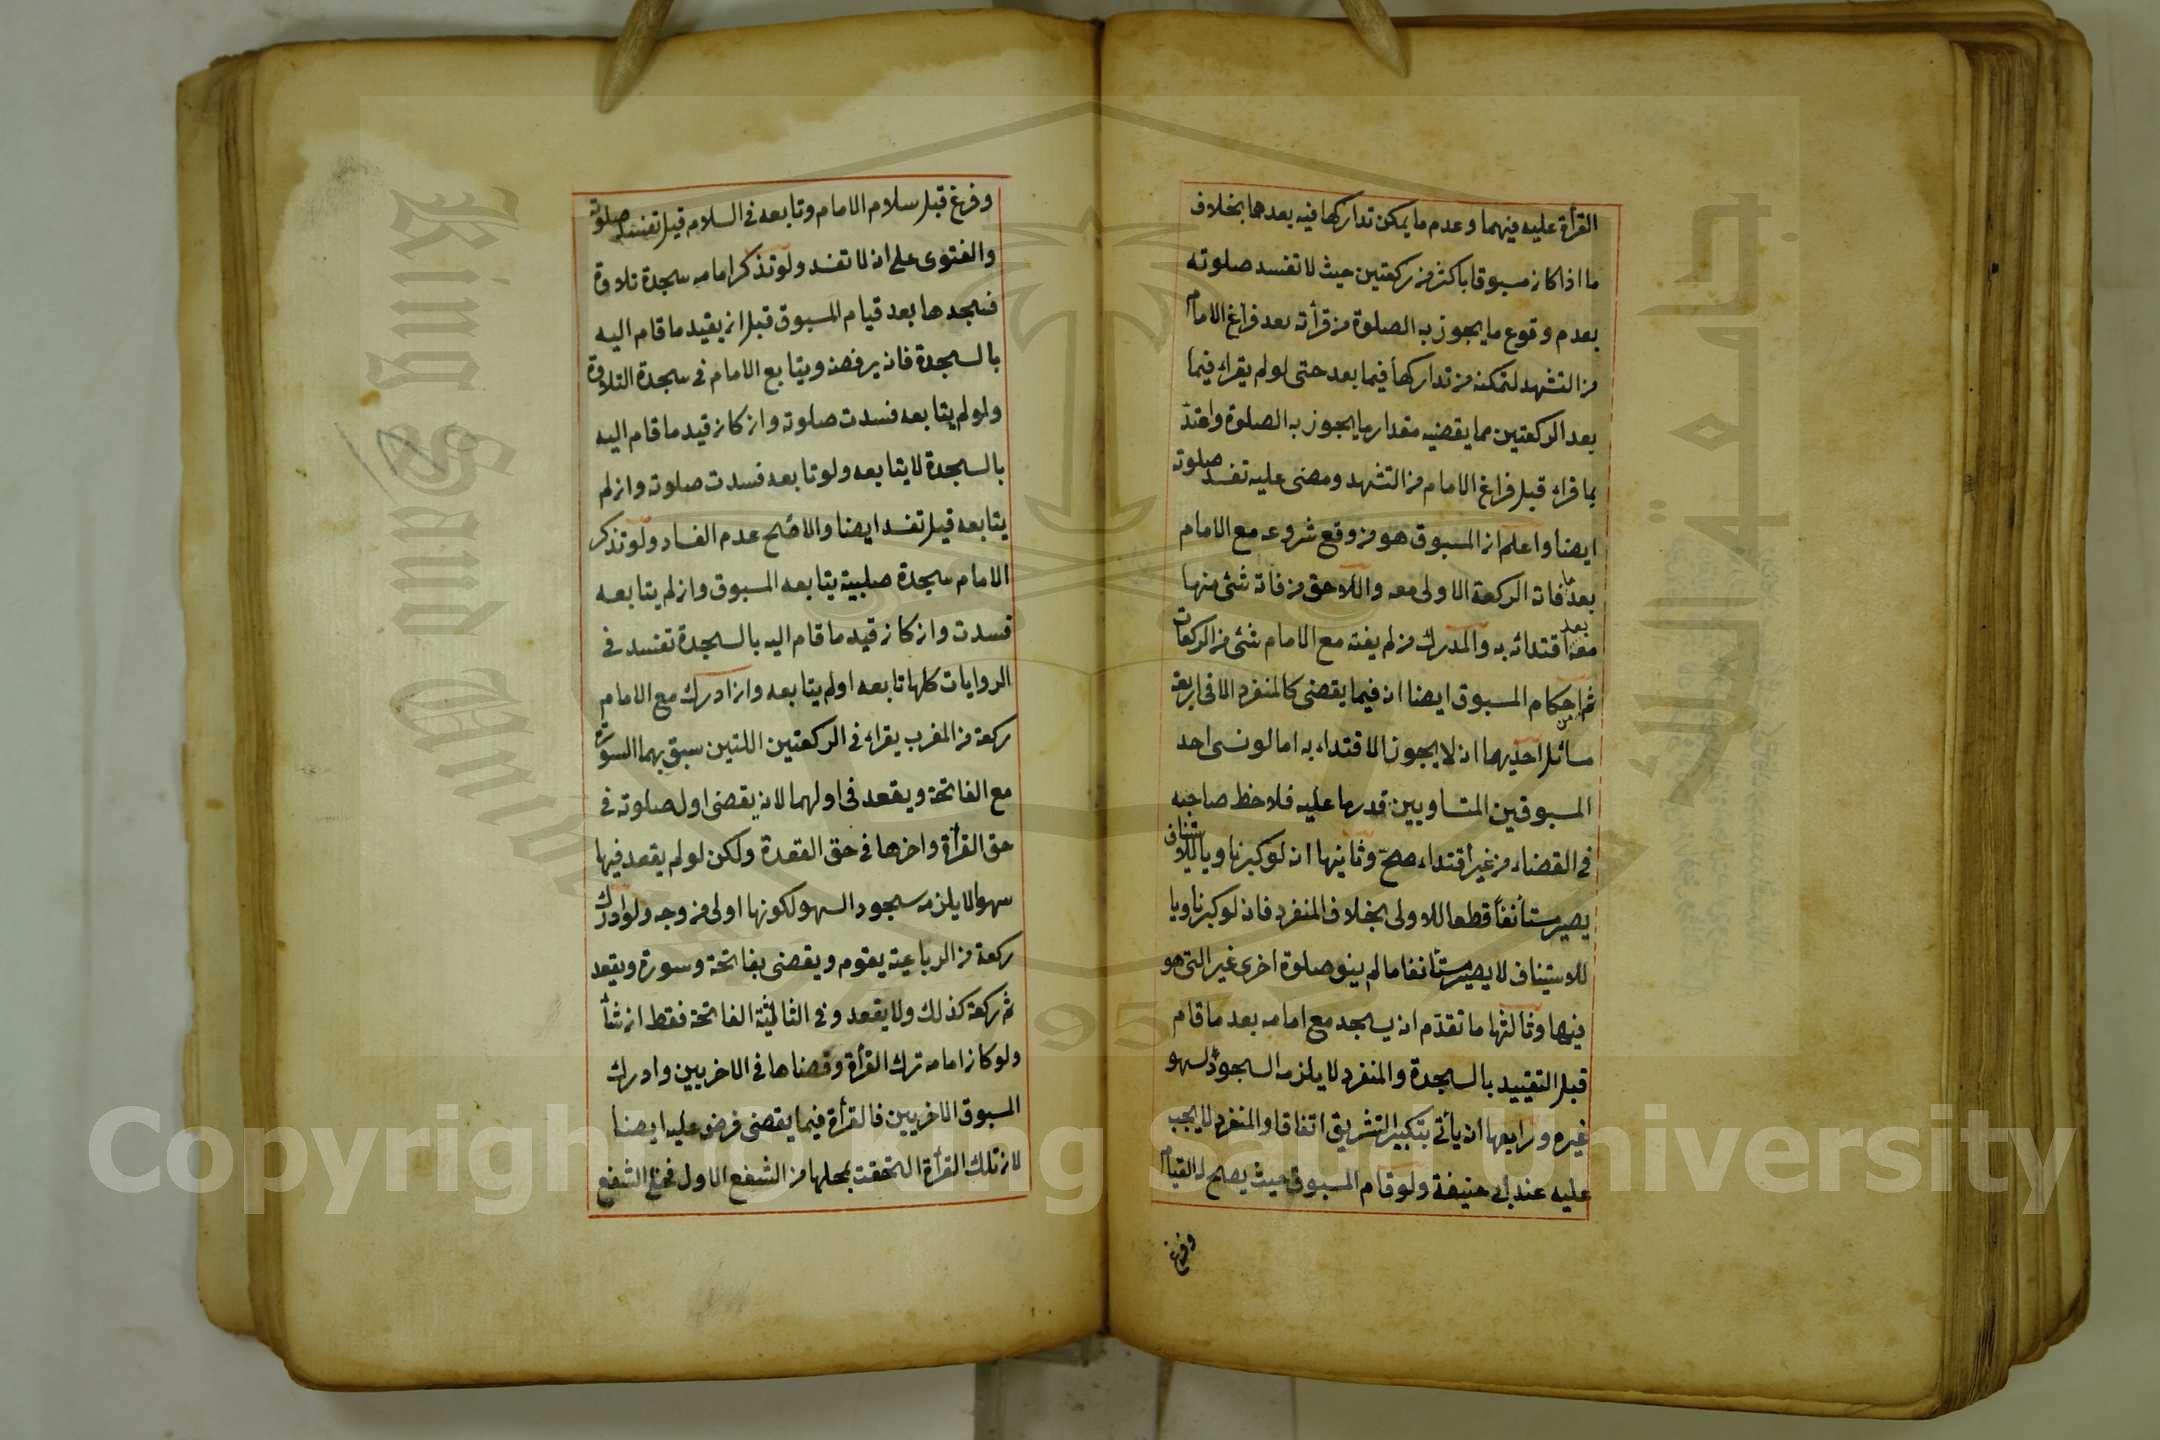 القرأة عليه فيهما وعدم ما يمكن تداركها فيه بعدهما بخلاف
ما اذا كان مسبوقا باكثر من ركعتين حيث لا تفسد صلوته
بعدم وقوع ما يجوز به الصلوة من قرأته بعد فراغ الامام
من التشهد لتمكنه من تداركها فيما بعد حتى لو لم يقراء فيما
بعد الركعتين مما يقضيه مقدار ما يجوز به الصلوة واعتدّ
بما قراء قبل فراغ الامام من التشهد ومضى عليه تفسد صلوته
ايضا واعلم ان المسبوق هو من وقع شروعه مع الامام
بعد ما فاته الركعة الاولى معه واللاحق من فاته شئ منها
معه بعد اقتدائه به والمدرك من لم يفته مع الامام شئ من الركعات
ثم احكام المسبوق ايضا انه فيما يقضى كالمنفرد الا فى اربعة
مسائل احديهما انه لا يجوز الاقتداء به اما لو نسى احد
المسبوقين المتساويين قدر ما عليه فلاحظ صاحبه
فى القضاء من غير اقتداء صحّ وثانيها انه لو كبر ناويا للاستيناف
يصير مستأنفا قطعا للاولى بخلاف المنفرد فانه لو كبر ناويا
للاستيناف لا يصير مستأنفا ما لم ينو صلوة اخرى غير التى هو
فيها وثالثها ما تقدّم انه يسجد مع امامه بعد ما قام
قبل التقييد بالسجدة والمنفرد لا يلزمه السجود لسهو
غيره ورابعها انه يأتى بتكبير التشريق اتفاقا والمنفرد لا يجب
عليه عند ابى حنيفة ولو قام المسبوق حيث يصح له القيام
وفرغ
وفرغ قبل سلام الامام وتابعه فى السلام قيل تفسد صلوته
والفتوى على انه لا تفسد ولو تذكر امامه سجدة تلاوة
فسجدها بعد قيام المسبوق قبل ان يقيد ما قام اليه
بالسجدة فانه يرفضه ويتابع الامام فى سجدة التلاوة
ولو لم يتابعه فسدت صلوته وان كان قيد ما قام اليه
بالسجدة لا يتابعه ولو تابعه فسدت صلوته وان لم
يتابعه قيل تفسد ايضا والاصّح عدم الفساد ولو تذكر
الامام سجدة صلبية يتابعه المسبوق وان لم يتابعه
فسدت وان كان قيد ما قام اليه بالسجدة تفسد فى
الروايات كلها تابعه او لم يتابعه وان ادرك مع الامام
ركعة من المغرب يقراء فى الركعتين اللتين سبق بهما السورة
مع الفاتحة ويقعد فى اولهما لانه يقضى اول صلوته فى
حق القرأة واخرها فى حق القعدة ولكن لو لم يقعد فيها
سهوا لا يلزمه سجود السهو لكونها اولى من وجه ولو ادرك
ركعة من الرباعية يقوم ويقضى بفاتحة وسورة ويقعد
ثم ركعة كذلك ولا يقعد وفى الثالثة الفاتحة فقط ان شأ
ولو كان امامه ترك القرأة وقضاها فى الاخريين وادرك
المسبوق الاخريين فالقرأة فيما يقضى فرض عليه ايضا
لان تلك القرأة التحقت بمحلها من الشفع الاول فخلا الشفع
Copyright © King Saud University
King Saud University